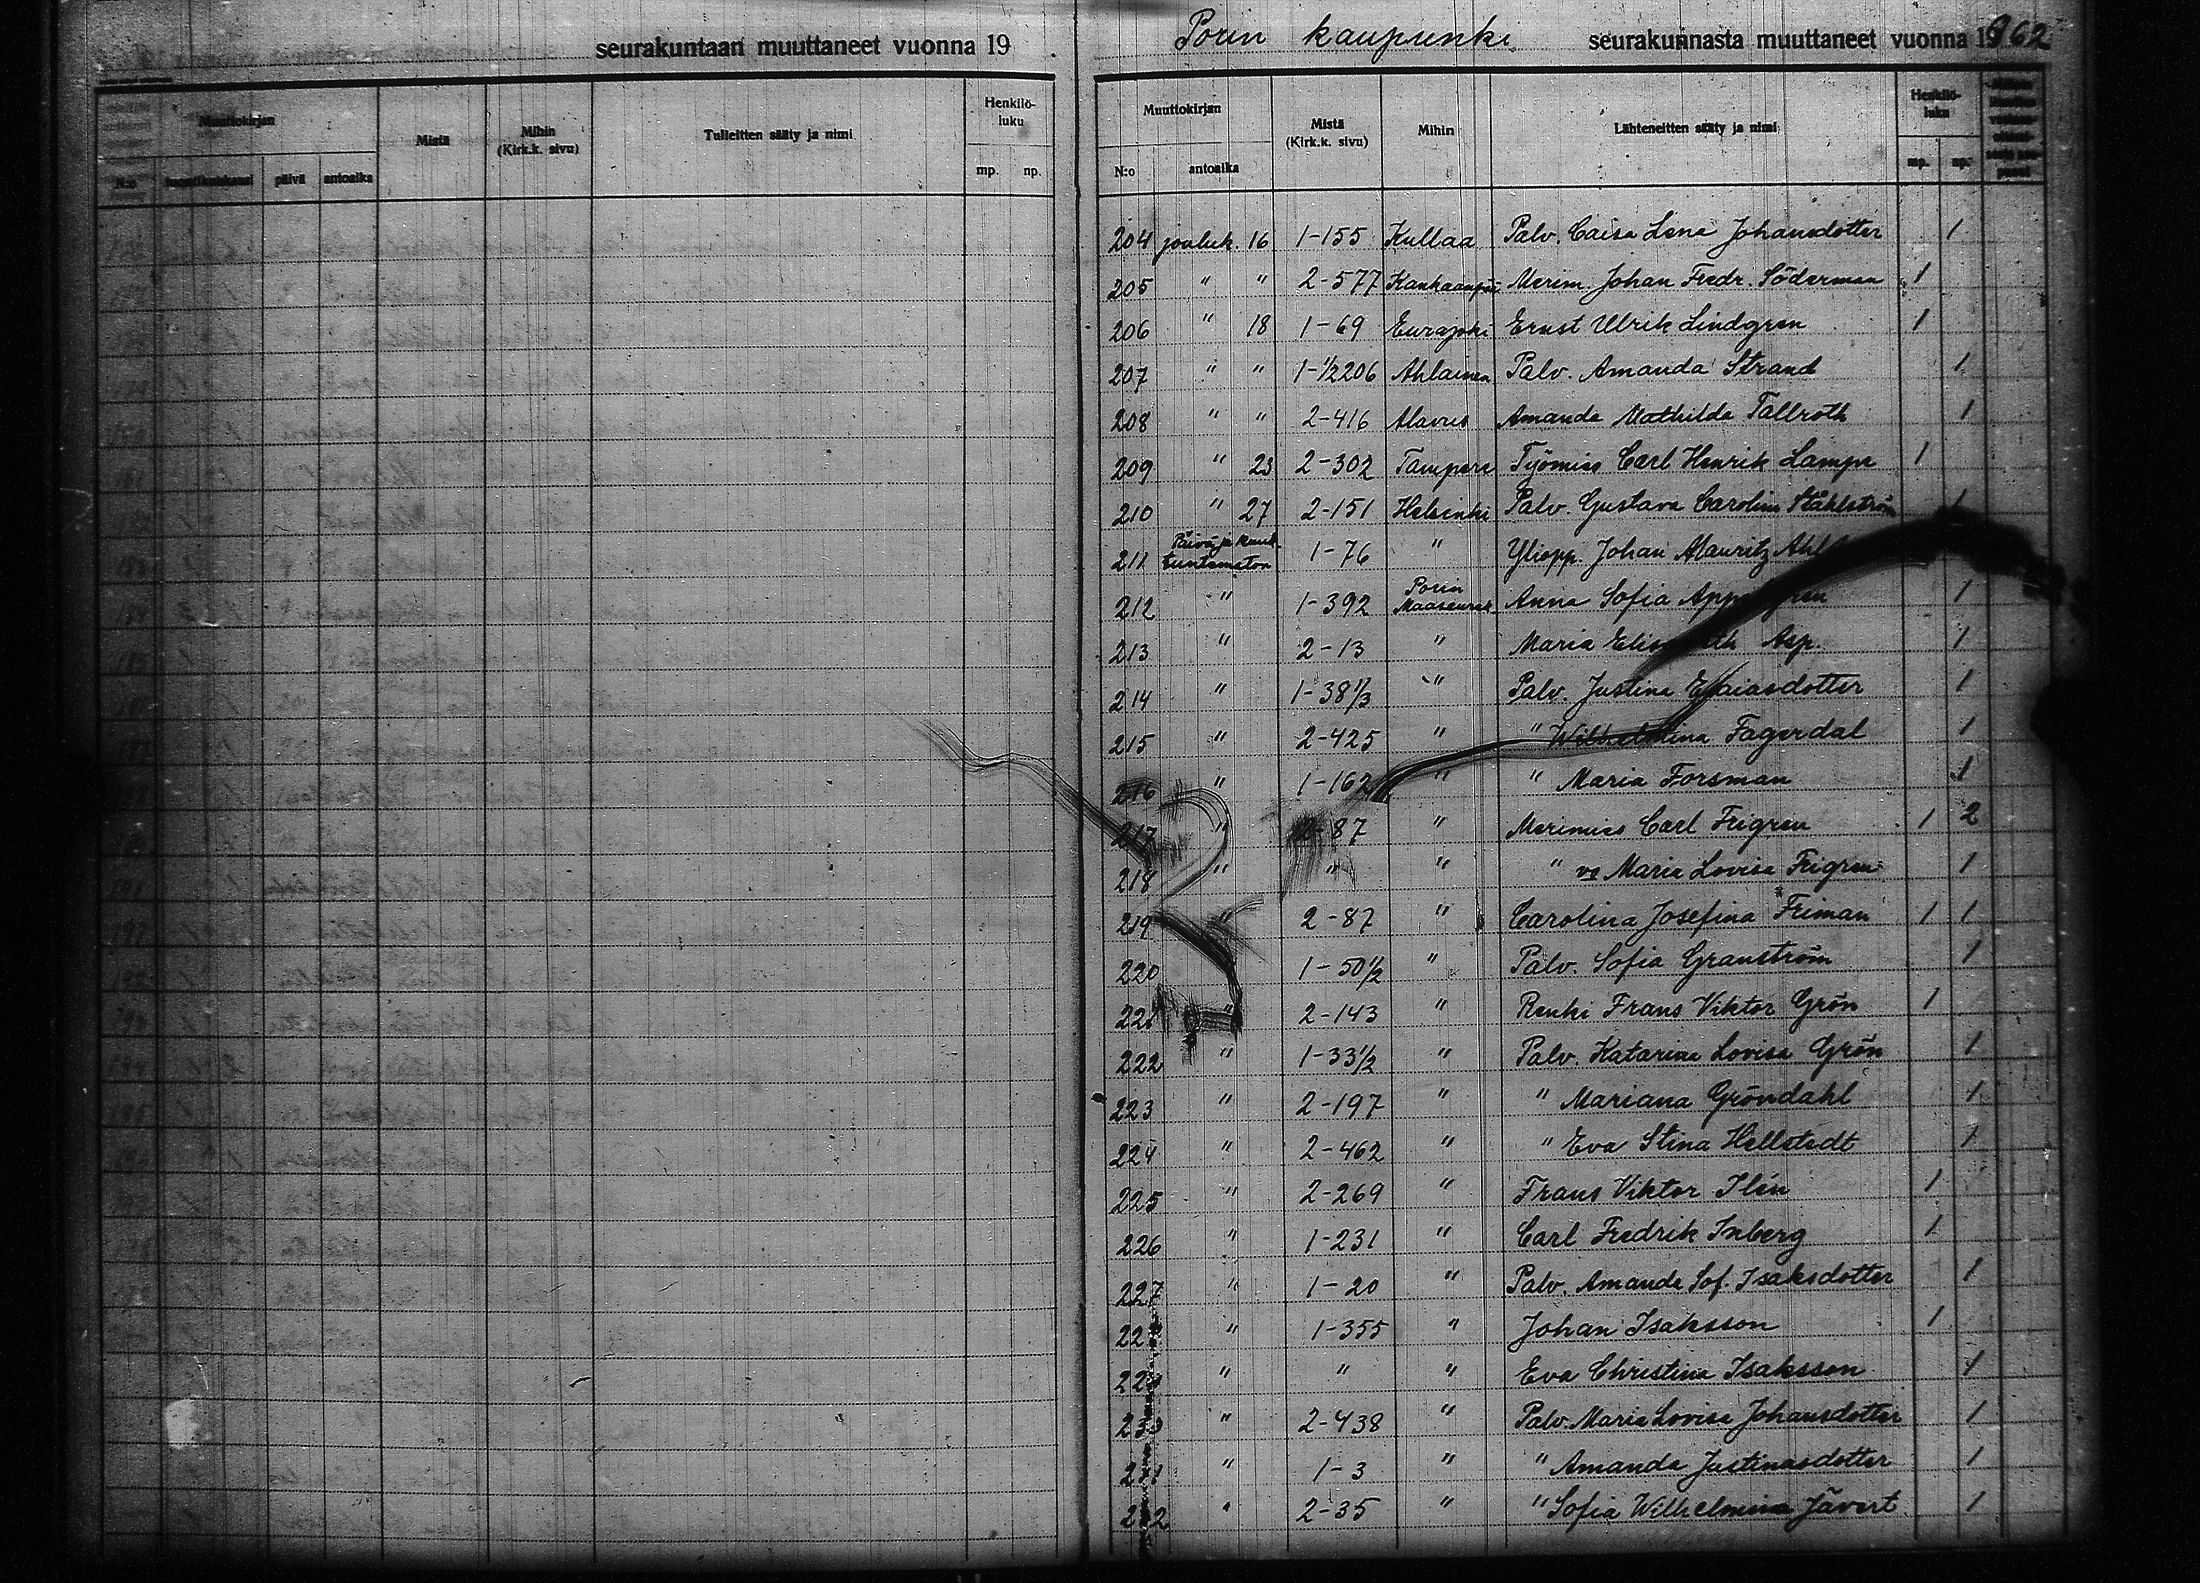 seurakuntaan muuttaneet vuonna 19
Muuttokirjan Mistä Mihin (Kirk.k. sivu) Tulleitten sääty ja nimi Henkilö-luku
N:o päivä antoaika mp. np.
Porin kaupunki seurakunnasta muuttaneet vuonna 1862
Muuttokirjan Mistä (Kirk.k. sivu) Mihin Lähteneitten sääty ja nimi Henkilö-luku
N:o antoaika mp. np.
204 jouluk. 16 1-155 Kullaa Palv. Caisa Lena Johansdotter 1
205 " " 2-577 Kankaanpää Merim. Johan Fredr. Söderman 1
206 " 18 1-69 Eurajoki Ernst Ulrik Lindgren 1
207 " " 1-1/2206 Ahlainen Palv. Amanda Strand 1
208 " " 2-416 Alavus Amanda Mathilda Tallroth 1
209 " 23 2-302 Tampere Työmies Carl Henrik Lampe 1
210 " 27 2-151 Helsinki Palv. Gustava Carolina Ståhlström 1
211 Päivä ja kuuk. tuntematon 1-76 " Yliopp. Johan Mauritz
212 " 1-392 Porin Maaseurak. Anna Sofia 1
213 " 2-13 " Maria Elisabeth Asp. 1
214 " 1-38 1/3 " Palv. Justina Esaiasdotter 1
215 " 2-425 " " Wilhelmina Fagerdal 1
216 " 1-162 " " Maria Forsman 1
217 " 2-87 " Merimies Carl Frigren 1 2
218 " " " " vo Maria Lovisa Frigren 1
219 " 2-87 " Carolina Josefina Friman 1 1
220 1-50 1/2 " Palv. Sofia Granström 1
221 " 2-143 " Renki Frans Viktor Grön 1
222 " 1-33 1/2 " Palv. Katarina Lovisa Grön 1
223 " 2-197 " " Mariana Gröndahl 1
224 " 2-462 " " Eva Stina Hellstedt 1
225 " 2-269 " Frans Viktor Ilén 1
226 " 1-231 " Carl Fredrik Inberg 1
227 " 1-20 " Palv. Amanda Sof. Isaksdotter 1
228 " 1-355 " Johan Isaksson 1
229 " " " Eva Christina Isaksson 1
230 " 2-438 " Palv. Maria Lovisa Johansdotter 1
231 " 1-3 " " Amanda Justinasdotter 1
232 " 2-35 " " Sofia Wilhelmina Jävert 1